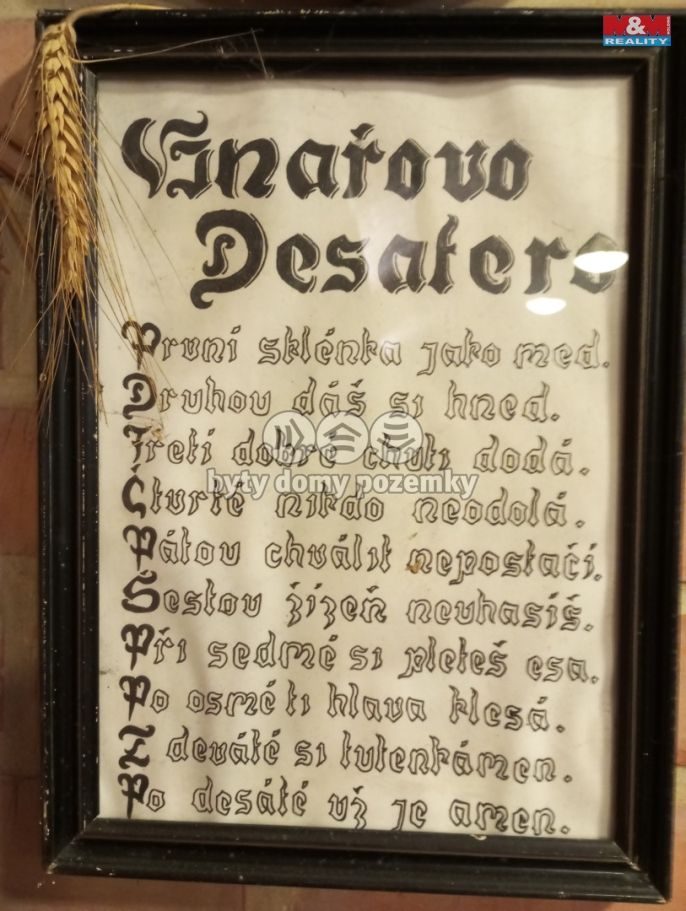 M&M
REALITY
Vinařovo
Desatero
První sklénka jako med.
Druhou dáš si hned.
Třetí dobré chuti dodá.
Čtvrté nikdo neodolá.
Pátou chválit nepostačí.
Šestou žízeň neuhasíš.
Při sedmé si pleteš esa.
Po osmé ti hlava klesá.
V deváté si tutenkámen.
Po desáté už je amen.
byty domy pozemky